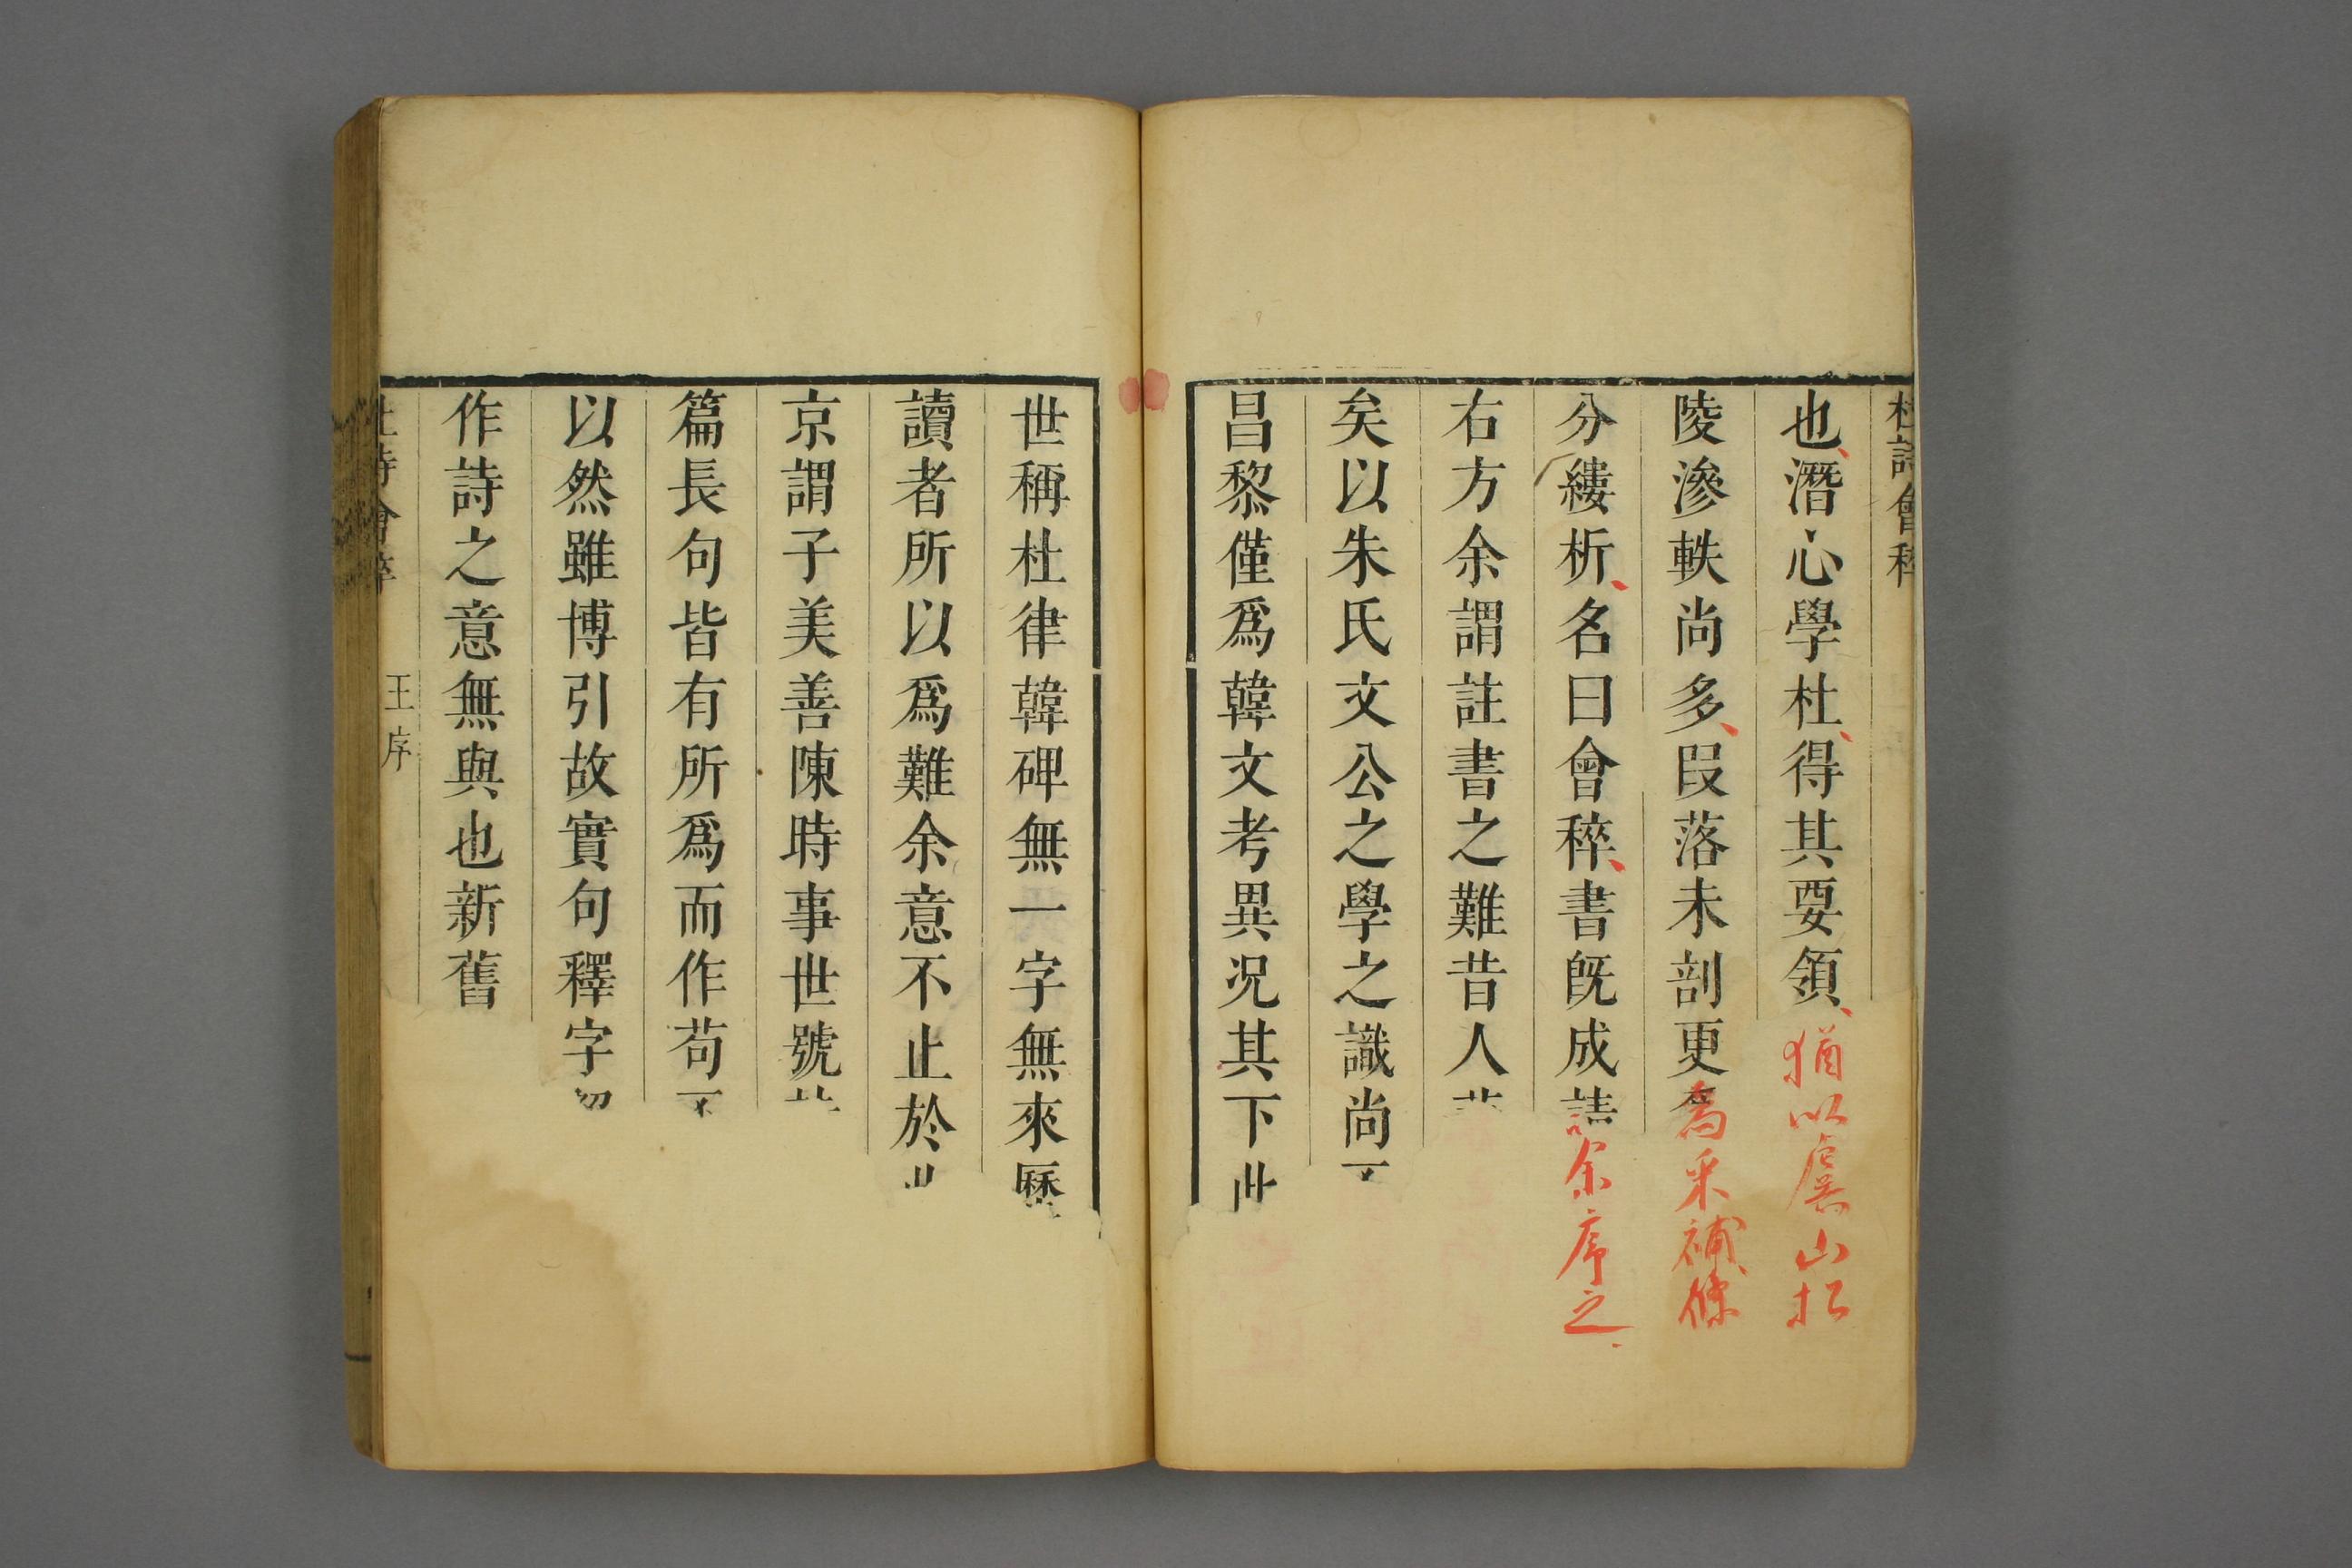 杜詩會稡
也潛心學杜得其要領猶以虞山松
陵滲軼尚多段落未剖更爲采補條
分縷析名曰會稡書旣成請余序之
右方余謂註書之難昔人
矣以朱氏文公之學之識尚
昌黎僅爲韓文考異況其下此
世稱杜律韓碑無一字無來歷
讀者所以爲難余意不止於
京謂子美善陳時事世號
篇長句皆有所爲而作苟
以然雖博引故實句釋字
作詩之意無與也新舊
杜詩會稡 王序